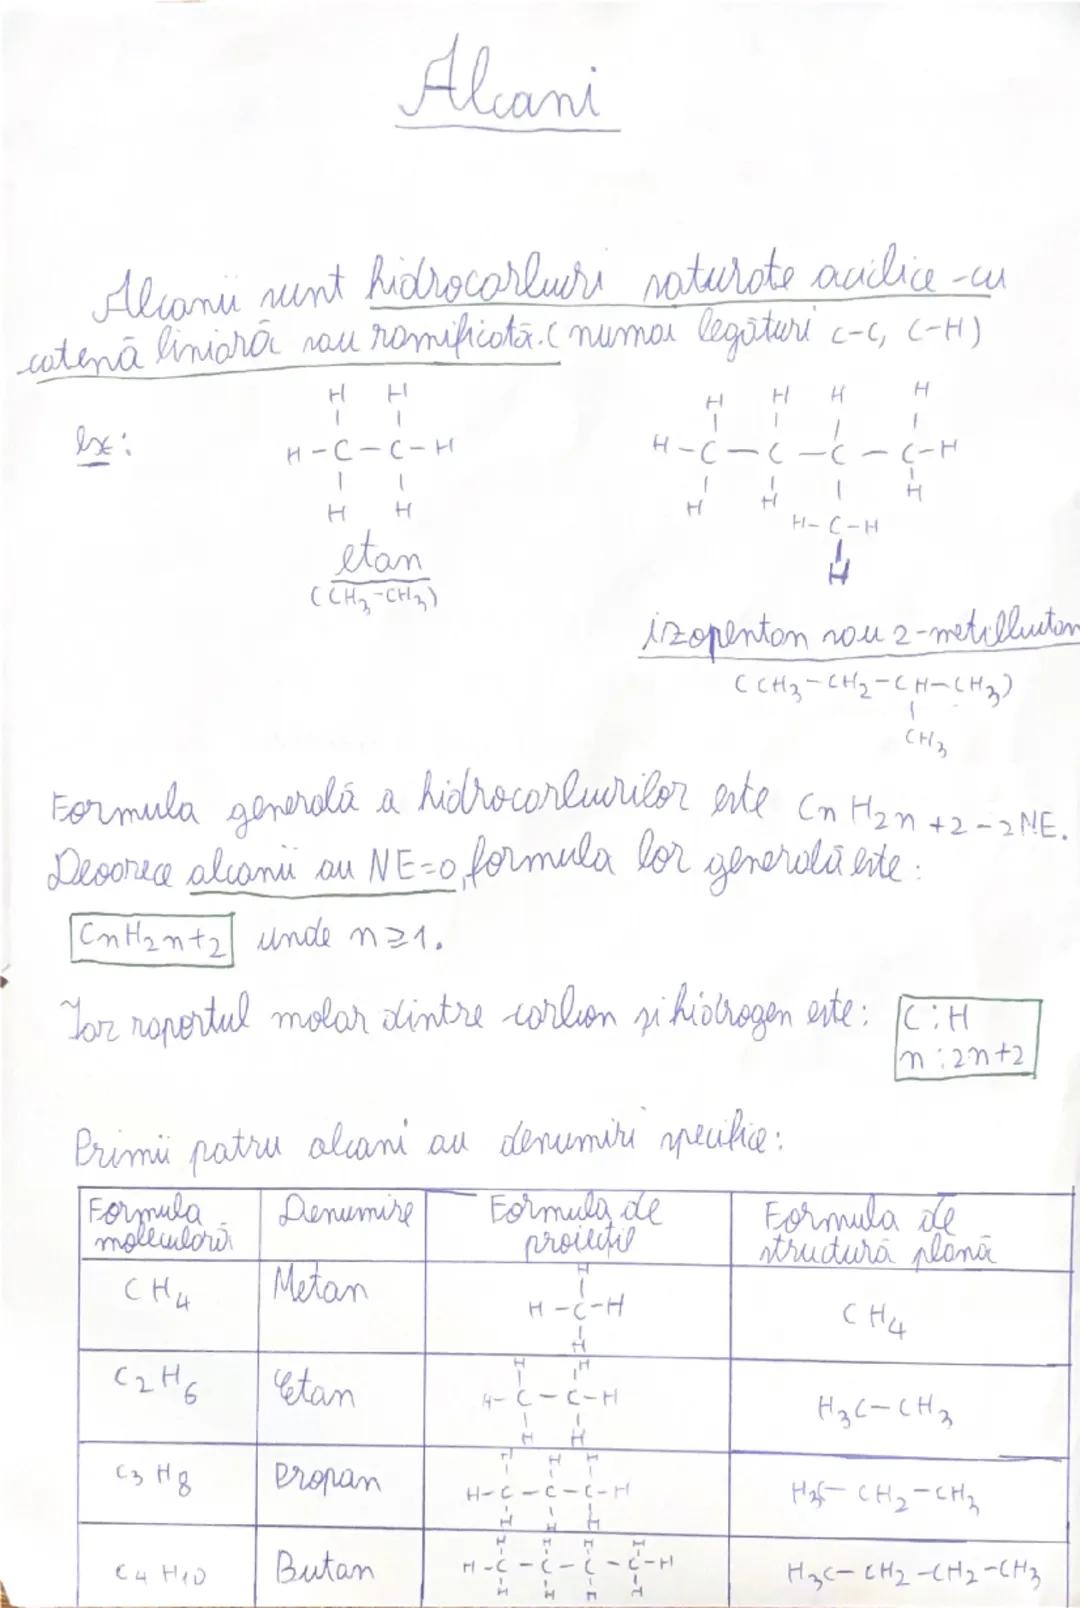 Alcani
Alcanii sunt hidrocarburi saturate aciclice - cu
catenă liniară sau ramificată. (numai legături C-C, C-H)
ex:
H H
H-C-C-H
H H
etan
(CH3-CH3)
H H H H
H-C-C-C-C-H
H H H
H-C-H
H
izopentan sau 2-metilbutan
(CH3-CH2-CH-CH3)
CH3
Formula generală a hidrocarburilor este CnH2n+2-2NE.
Deoarece alcanii au NE=0, formula lor generală este:
CnH2n+2 unde n≥1.
Iar raportul molar dintre carbon și hidrogen este: C:H
n:2n+2
Primii patru alcani au denumiri specifice:
Formula moleculară Denumire Formula de proiecție Formula de structură plană
H
CH4 Metan H-C-H CH4
H
H H
C2H6 Etan H-C-C-H H3C-CH3
H H
H H H
C3H8 Propan H-C-C-C-H H3C-CH2-CH3
H H H
H H H H
C4H10 Butan H-C-C-C-C-H H3C-CH2-CH2-CH3
H H H H